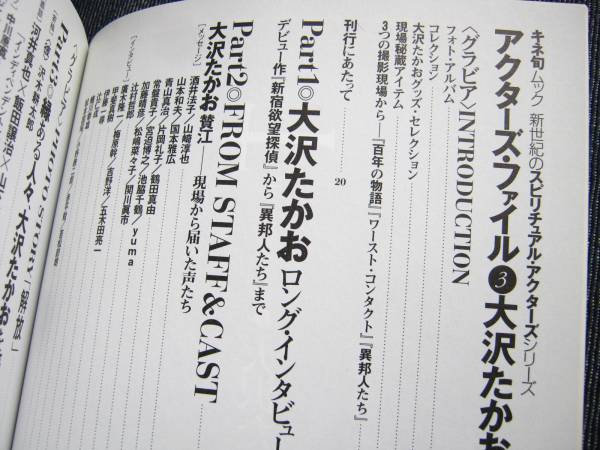 キネ旬ムック 新世紀のスピリチュアル・アクターズシリーズ
アクターズ・ファイル❸大沢たかお
〈グラビア〉INTRODUCTION
フォト・アルバム
コレクション
大沢たかおグッズ・セレクション
現場秘蔵アイテム
3つの撮影現場から──『百年の物語』『ワースト・コンタクト』『異邦人たち』
刊行にあたって
20
Part1◎大沢たかお ロング・インタビュー
デビュー作『新宿欲望探偵』から『異邦人たち』まで
Part2◎FROM STAFF & CAST
大沢たかお 賛江──現場から届いた声たち
[メッセージ]
酒井法子/山崎淳也
山本和夫/国本雅広
青山真治/片岡礼子/鶴田真由
常盤貴子/宮迫博之/池脇千鶴/yuma
加藤晴彦/松嶋菜々子/関川眞市
[インタビュー]
辻村哲郎
廣木隆一
甲斐真樹
伊藤正昭/梅原幹/吉野洋/五木田亮一
Part3◎縁ある人々、大沢たかお
沢木耕太郎
河井真也×飯田譲治×山